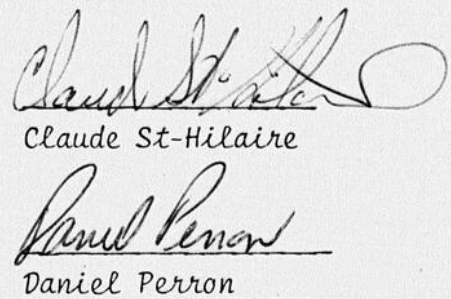 Claude St-Hilaire
Claude St-Hilaire
Daniel Perron
Daniel Perron